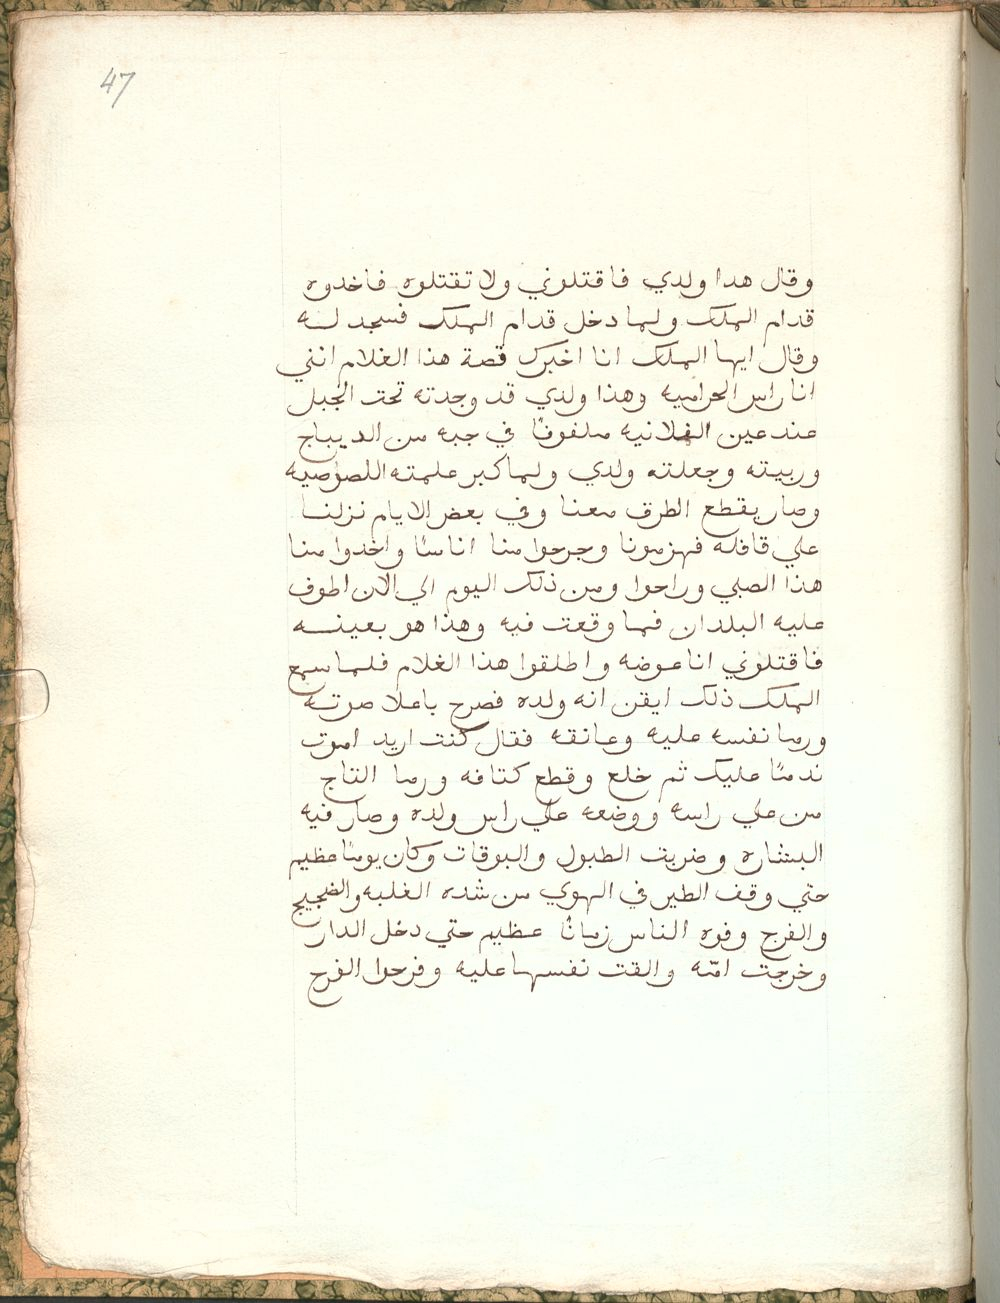 47
وقال هدا ولدي فاقتلوني ولا تقتلوه فاخدوه
قدام الملك ولما دخل قدام الملك فسجد له
وقال ايها الملك انا اخبرك قصة هذا الغلام انني
انا راس الحراميه وهذا ولدي قد وجدته تحت الجبل
عند عين الفلانيه ملفوفا في جبه من الديباج
وربيته وجعلته ولدي ولما كبر علمته اللصوصيه
وصار يقطع الطرق معنا وفي بعض الايام نزلنا
علي قافله فهزمونا وجرحوا منا اناسا واخدوا منا
هذا الصبي وراحوا ومن ذلك اليوم الي الان اطوف
عليه البلدان فما وقعت فيه وهذا هو بعينه
فاقتلوني انا عوضه واطلقوا هذا الغلام فلما سمع
الملك ذلك ايقن انه ولده فصرح باعلا صوته
ورما نفسه عليه وعانقه فقال كنت اريد اموت
ندمًا عليك ثم خلع وقطع كتافه ورما التاج
من علي راسه ووضعه علي راس ولده وصار فيه
البشاره وضربت الطبول والبوقات وكان يومًا عظيم
حتي وقف الطير في الهوي من شده الغلبه والضجيج
والفرح وفره الناس زمانًا عظيم حتي دخل الدار
وخرجت امّه والقت نفسها عليه وفرحوا الفرح